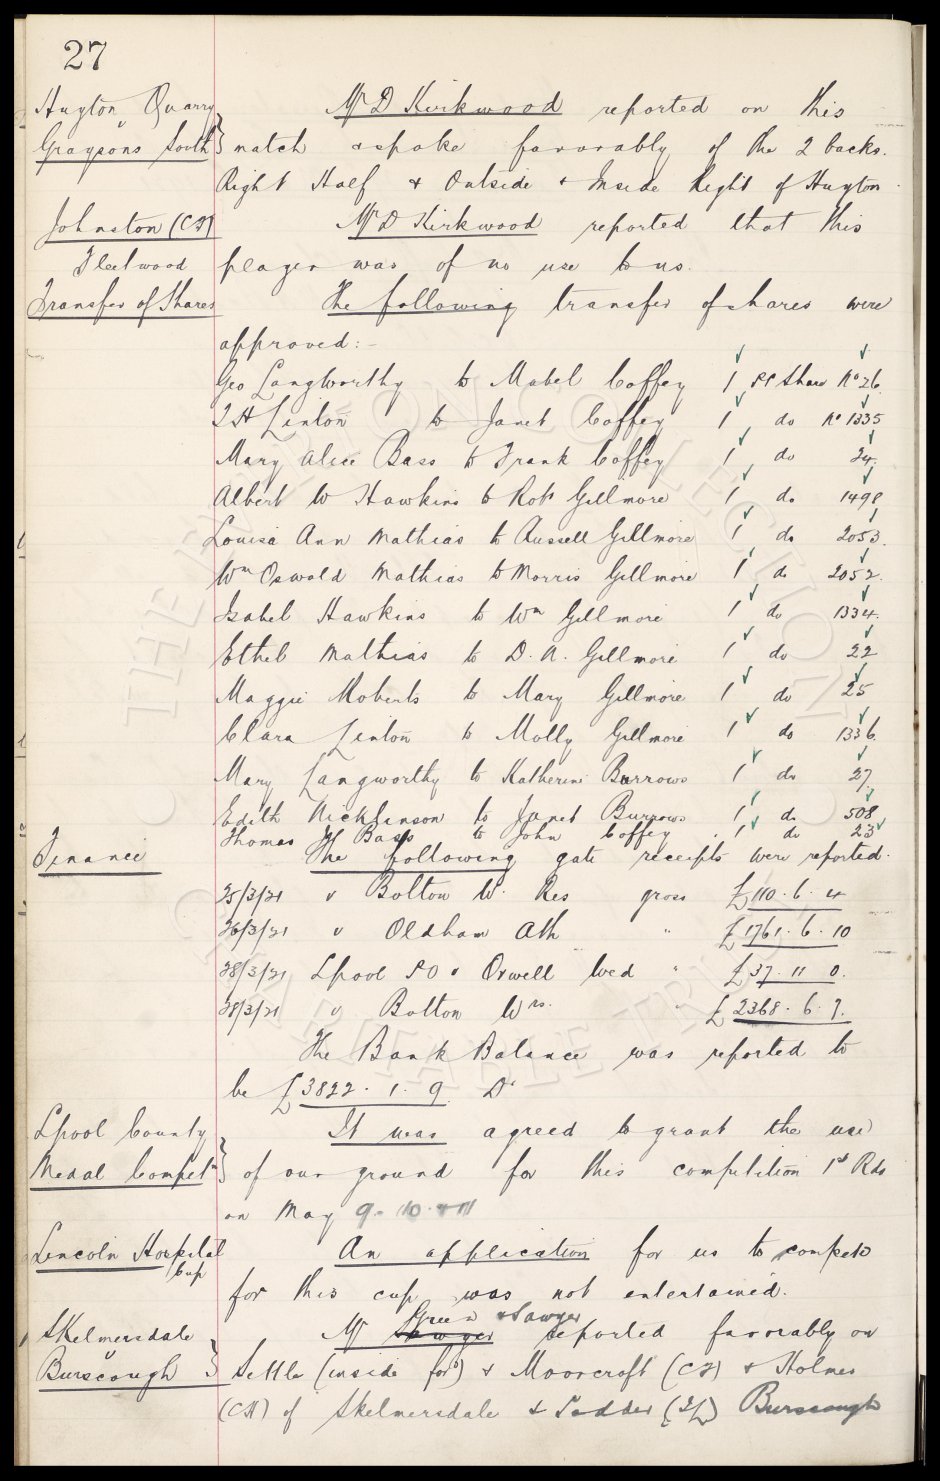 27
Huyton Quarry
v
Graysons South
Mr D Kirkwood reported on this
match & spoke favorably of the 2 backs.
Right Half & Outside & Inside Right of Huyton.
Johnston (CH)
Fleetwood
Mr D Kirkwood reported that this
player was of no use to us.
Transfer of Shares
The following transfer of shares were
approved:-
Geo Langworthy to Mabel Coffey 1 share No 26
T H Linton to Janet Coffey 1 do No 1335
Mary Alice Bass to Frank Coffey 1 do 24
Albert W Hawkins to Robt Gillmore 1 do 1498
Louisa Ann Mathias to Russell Gillmore 1 do 2053
Wm Oswald Mathias to Morris Gillmore 1 do 2052
Isabel Hawkins to Wm Gillmore 1 do 1334
Ethel Mathias to D. A. Gillmore 1 do 22
Maggie Roberts to Mary Gillmore 1 do 25
Clara Linton to Molly Gillmore 1 do 1336
Mary Langworthy to Katherine Burrows 1 do 27
Edith Nicklinson to Janet Burrows 1 do 508
Thomas H Bass to John Coffey 1 do 23
Finance
The following gate receipts were reported.
25/3/21 v Bolton W. Res gross £110. 6. 4
26/3/21 v Oldham Ath " £1761. 6. 10
28/3/21 Lpool v Orwell Wed " £37. 11 0.
28/3/21 v Bolton Wrs. " £2368. 6. 7.
The Bank Balance was reported to
be £3822. 1. 9 Dr
Lpool County
Medal Compet'n
It was agreed to grant the use
of our ground for this competition 1st Rds
on May 9. 10. & 11
Lincoln Hospital
Cup
An application for us to compete
for this cup was not entertained.
Skelmersdale
v
Burscough
Mr Sawyer Green & Sawyer reported favorably on
Settle (inside for) & Moorcroft (CF) & Holmes
(CH) of Skelmersdale & Burscough
THE EVERTON COLLECTION
CHARITABLE TRUST